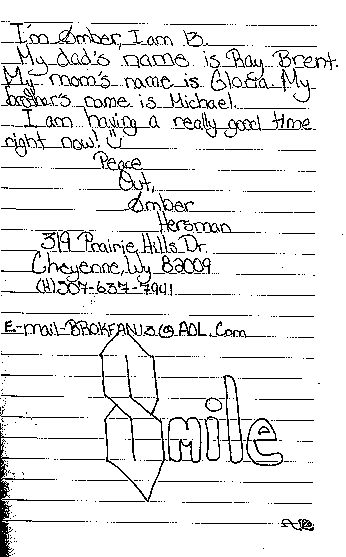 I'm Amber, I am 13.
My dad's name is Ray Brent.
My mom's name is Gloria. My
brother's name is Michael.
I am having a really good time
right now!
Peace
Out,
Amber
Hersman
319 Prairie Hills Dr.
Cheyenne, Wy 82009
(H) 307-637-7941
E-mail-BROKFAN13@AOL.Com
Smile